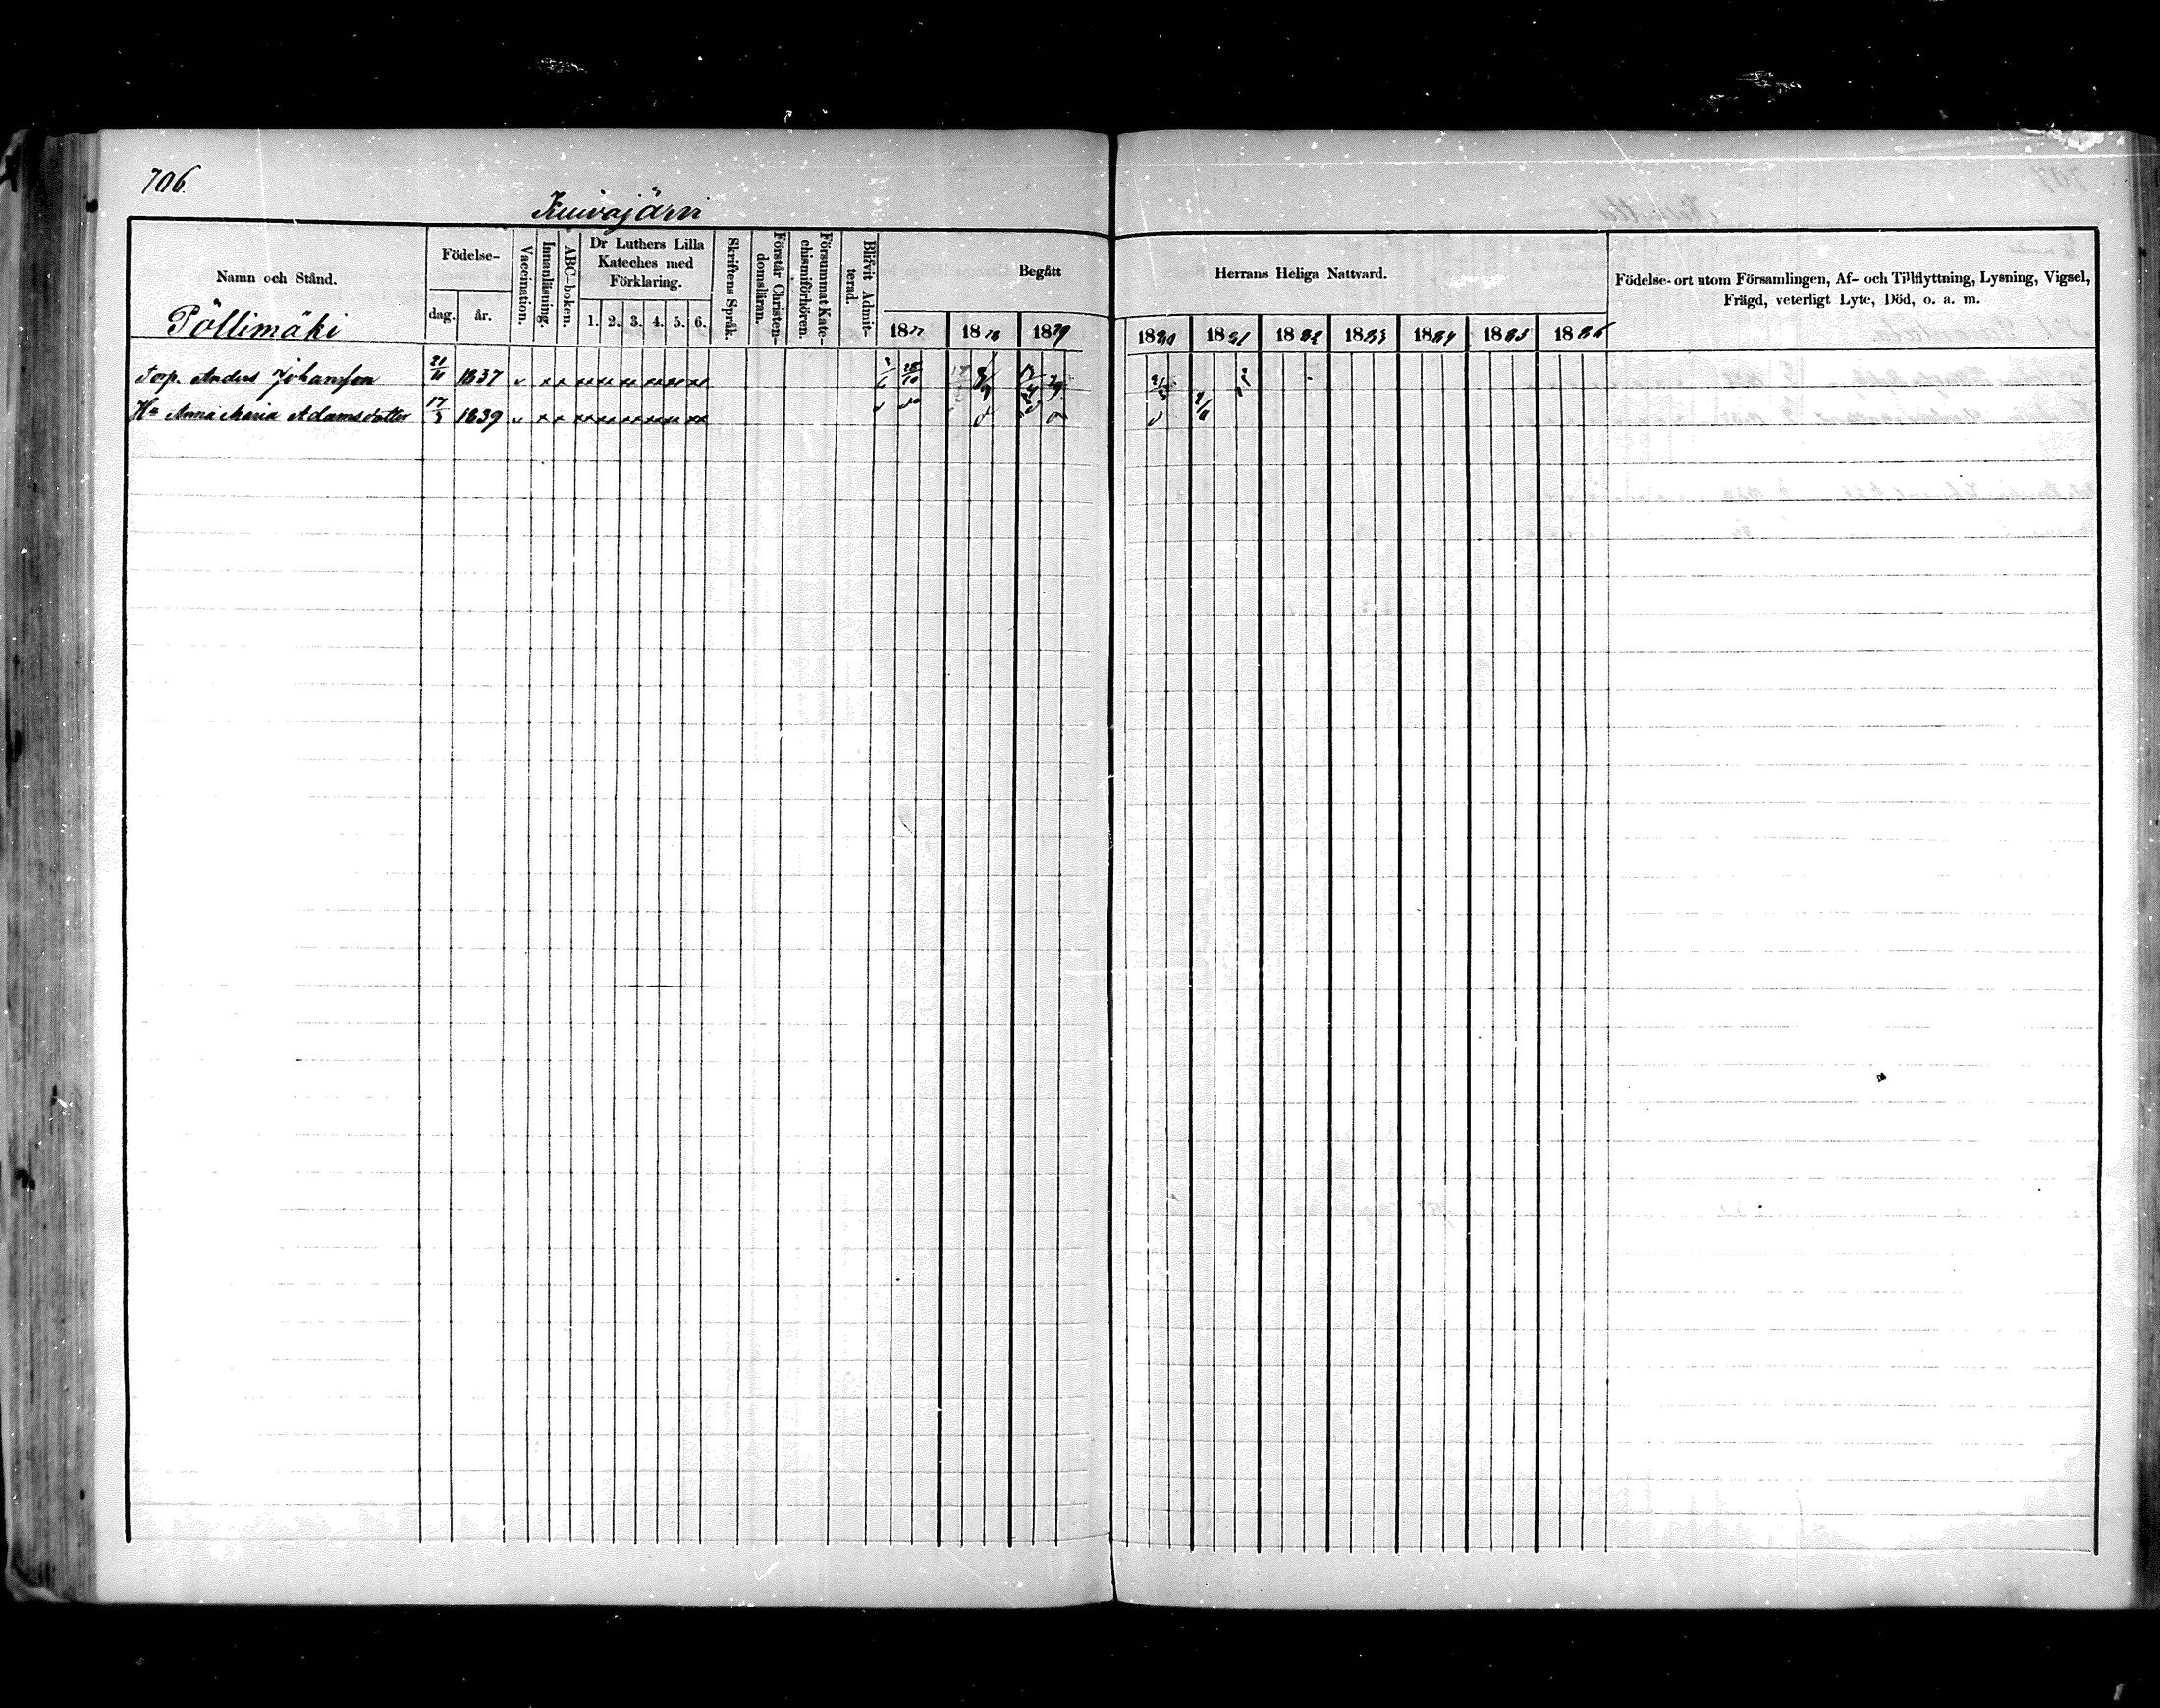 706.
Kuivajärvi
Namn och Stånd.
Födelse-
dag. år.
Vaccination.
Innanläsning.
ABC-boken.
Dr Luthers Lilla
Kateches med
Förklaring.
1. 2. 3. 4. 5. 6.
Skriftens Språk.
Förstår Christen-
domsläran.
Försummat Kate-
chismiförhören.
Blifvit Admit-
terad.
Begått
1877 1878 1879
Herrans Heliga Nattvard.
1880 1881 1882 1883 1884 1885 1886
Födelse-ort utom Församlingen, Af- och Tillflyttning, Lysning, Vigsel,
Frägd, veterligt Lyte, Död, o. a. m.
Pöllimäki
Torp. Anders Johansson 21/11 1837
Hu Anna Maria Adamsdotter 17/3 1839